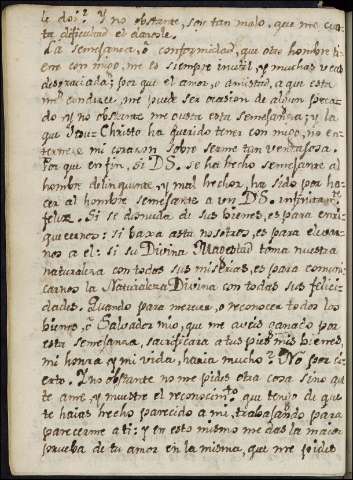 le doi? Y no obstante, soy tan malo, que me cues-
ta dificultad el darsele.
La semejança, ò conformidad, que otro hombre ti-
ene con migo, me es siempre inutil, y muchas veces
desgraciada; por que el amor, o amistad, a que esta
me conduce, me puede ser ocasion de algun peca-
do y no obstante me gusta esta semejanza; y la
que Jesu-Christo ha querido tener con migo, no en-
ternece mi corazon sobre serme tan ventajosa.
Por que en fin, si DS. se ha hecho semejante al
hombre delinquente, y mal hechor, ha sido por ha-
cer al hombre semejante a un DS. infinitamte.
feliz. Si se desnuda de sus bienes, es para enri-
quecernos: si baxa asta nosotros, es para elevar-
nos a el: si su Divina Magestad toma nuestra
naturaleza con todas sus miserias, es para comuni-
carnos la Naturaleza Divina con todas sus felici-
dades. Quando para merecer, o reconocer todos los
bienes, ò Salvador mio, que me aveis ganado por
esta semejanza, sacrificara a tus pies mis bienes,
mi honra y mi vida, haria mucho? No por ci-
erto. Y no obstante no me pides otra cosa sino que
te ame, y muestre el reconocimto. que tengo de que
te haias hecho parecido a mi, trabajando para
parecerme a ti: y en esto mismo me das la maior
prueba de tu amor en la misma, que me pides